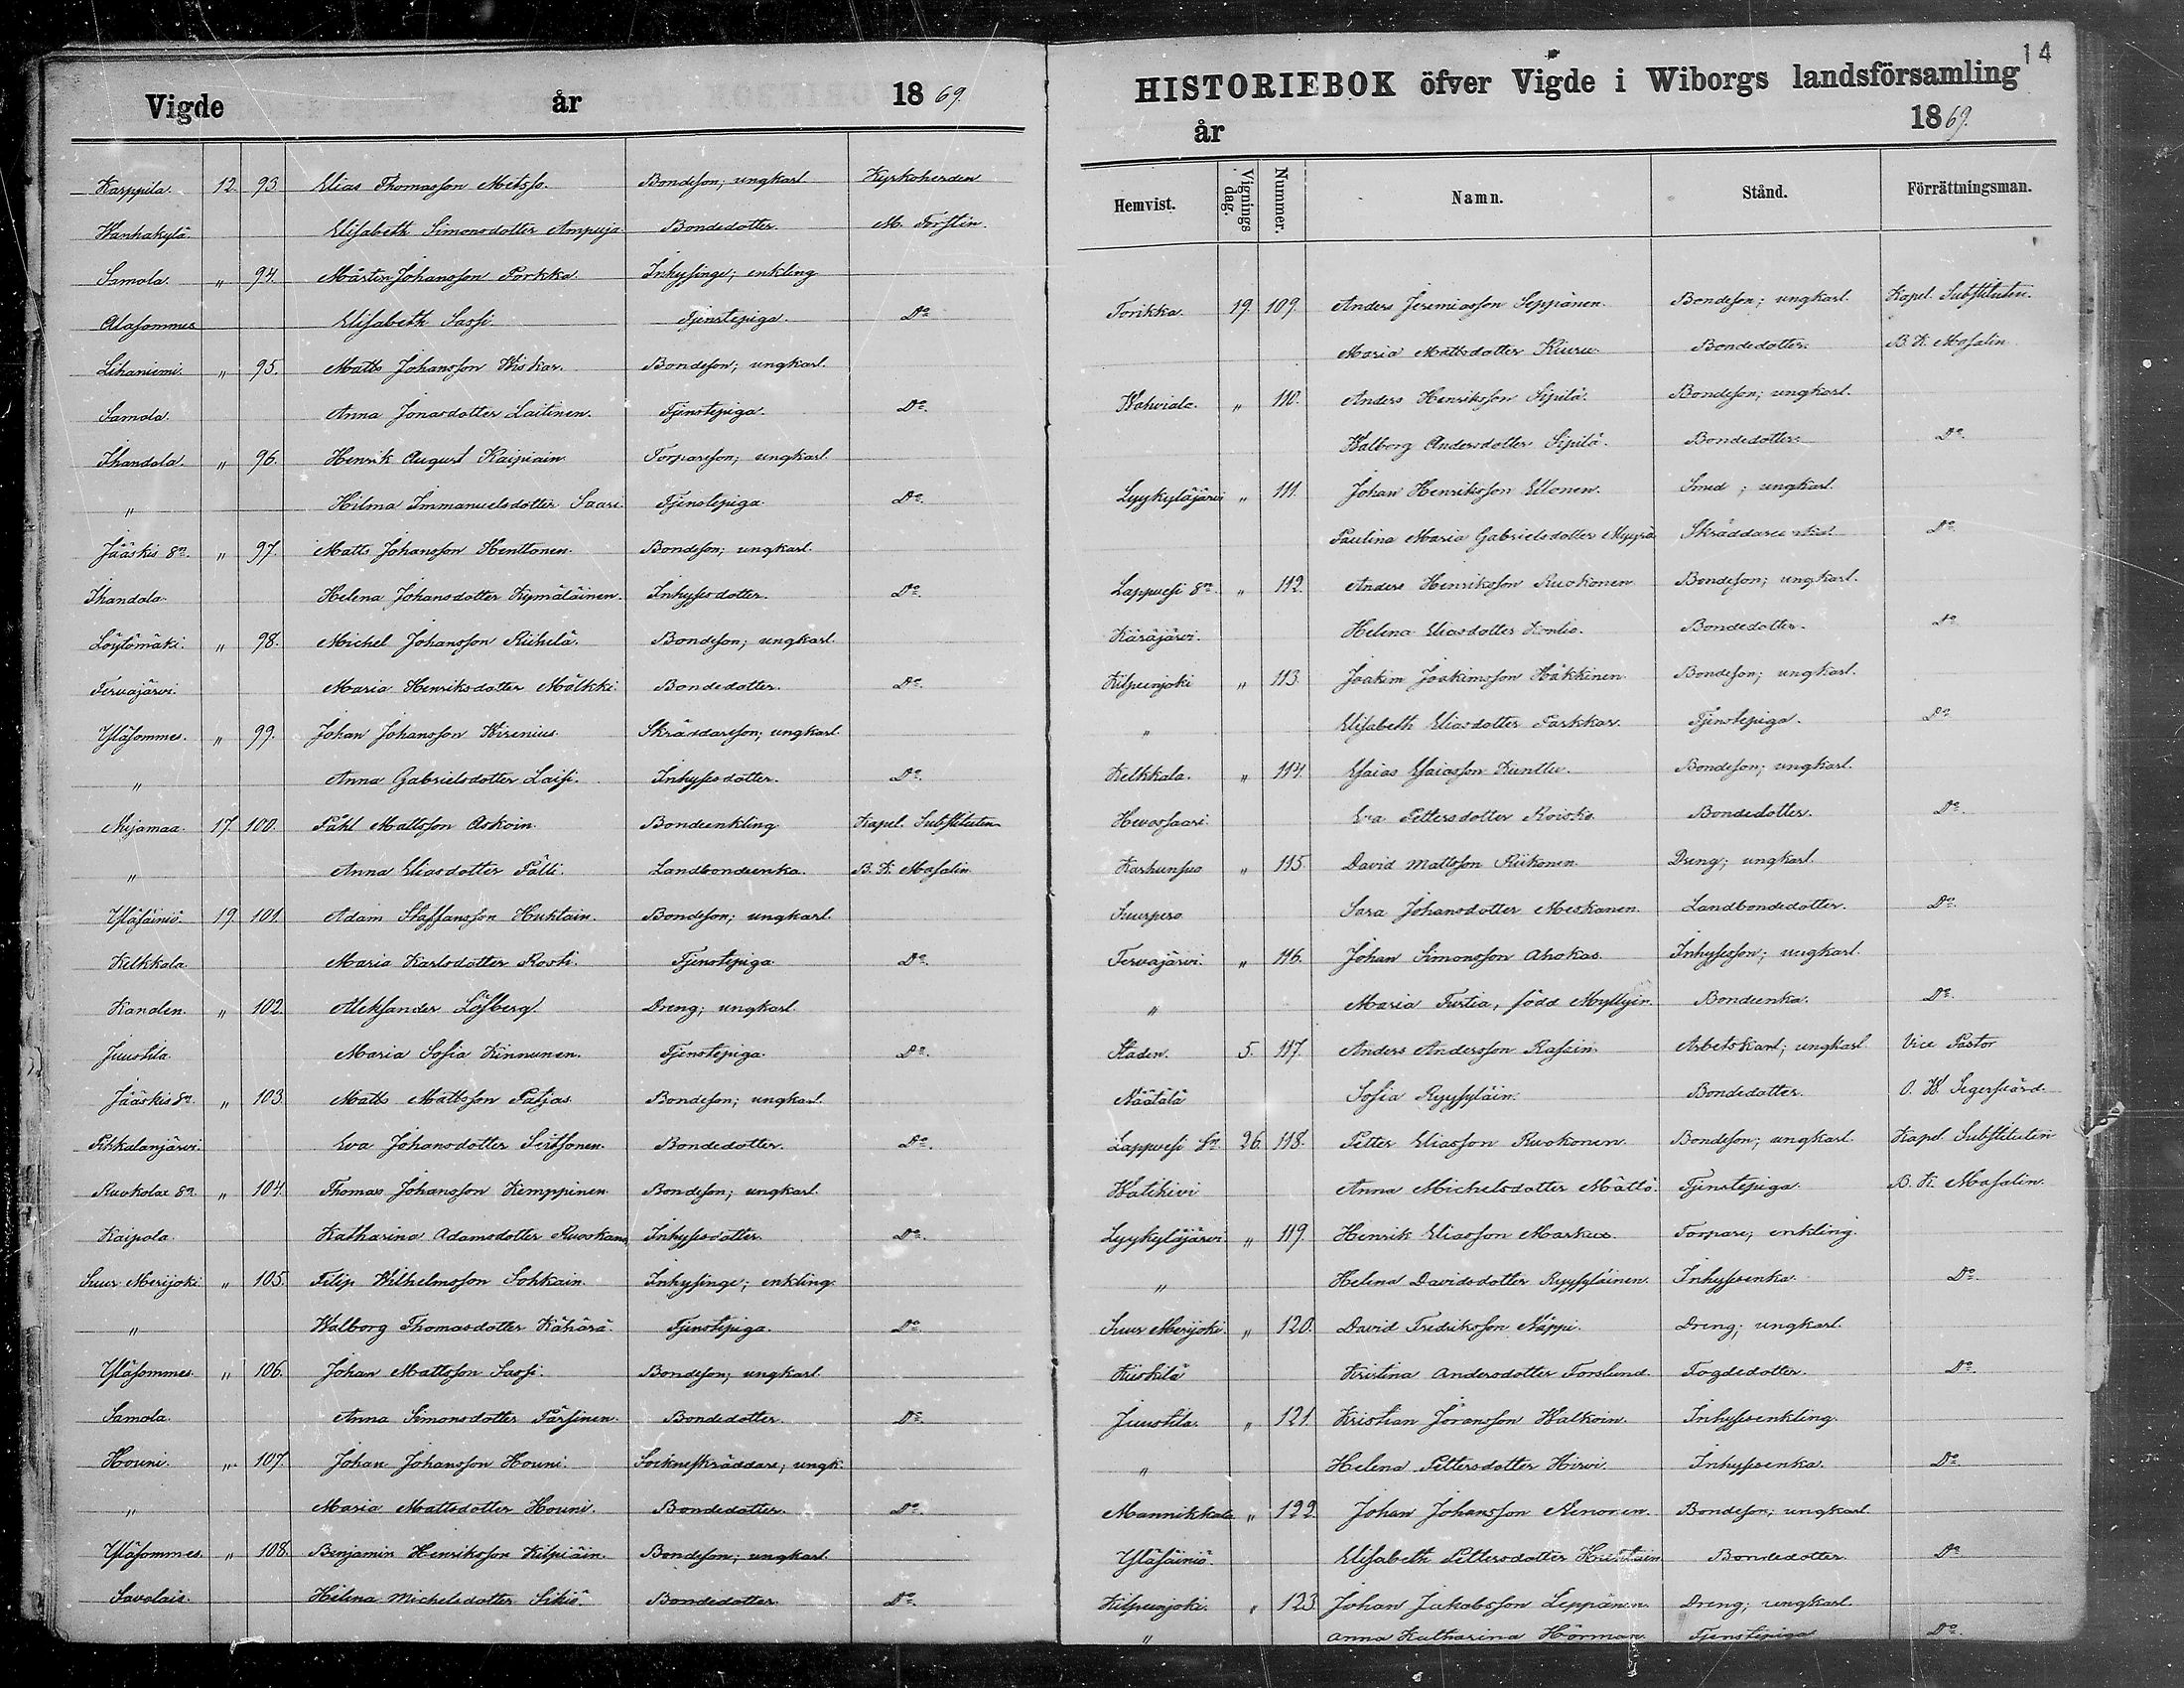 Vigde år 1869.
Karppila. 12 93 Elias Thomasson Metsso. Bondeson; ungkarl Kyrkoherden
Wanhakylä. Elisabeth Simonsdotter Ampuja Bondedotter. M. Forstén.
Samola. " 94. Mårten Johansson Porkka. Inhysinge; enkling
Alasommes Elisabeth Sassi. Tjenstepiga. Do
Lihaniemi. " 95. Matts Johansson Wiskar. Bondeson; ungkarl.
Samola. Anna Jonasdotter Laitinen. Tjenstepiga. Do.
Ihandala. " 96. Henrik August Kaipiain. Torpareson; ungkarl.
" Hilma Immanuelsdotter Saari. Tjenstepiga. Do.
Jääskis Sn. " 97. Matts Johansson Henttonen. Bondeson; ungkarl.
Ihandala. Helena Johansdotter Kymäläinen. Inhysesdotter. Do.
Löytömäki. " 98. Michel Johansson Riihelä. Bondeson; ungkarl.
Tervajärvi. Maria Henriksdotter Mölkki. Bondedotter. Do.
Yläsommes. " 99. Johan Johansson Wirenius. Skräddarson; ungkarl
" Anna Gabrielsdotter Laissi. Inhysesdotter. Do.
Nuijamaa. 17. 100. Påhl Mattsson Askoin. Bondeenkling Kapel. Substituten
" Anna Eliasdotter Pälli. Landbondeenka. B. K. Masalin
Yläsäiniö. 19. 101. Adam Staffansson Huktain. Bondeson; ungkarl.
Kelkkala. Maria Karlsdotter Rosti. Tjenstepiga. Do.
Kanalen. " 102. Aleksander Löfberg. Dreng; ungkarl.
Juustila. Maria Sofia Kinnunen. Tjenstepiga. Do.
Jääskis Sn. " 103. Matts Mattsson Patjas. Bondeson; ungkarl.
Pihkalanjärvi. Eva Johansdotter Seitsonen. Bondedotter. Do.
Ruokolax Sn. " 104. Thomas Johansson Kemppinen. Bondeson; ungkarl.
Kaipola. Katharina Adamsdotter Ruoskanen Inhysesdotter. Do.
Suur Merijoki " 105. Filip Wilhelmsson Sohkain. Inhysinge; enkling.
" Walborg Thomasdotter Kähärä. Tjenstepiga. Do.
Yläsommes. " 106. Johan Mattsson Sassi. Bondeson; ungkarl.
Samola. Anna Simonsdotter Pärsinen. Bondedotter. Do.
Houni. " 107. Johan Johansson Houni. Sockneskräddare; ungk.
" Maria Mattsdotter Houni. Bondedotter. Do.
Yläsommes. " 108. Benjamin Henriksson Kilpiäin. Bondeson; ungkarl.
Savolais. Helena Michelsdotter Sikiö. Bondedotter. Do.
14
HISTORIEBOK öfver Vigde i Wiborgs landsförsamling
år 1869.
Hemvist. Vignings dag. Nummer. Namn. Stånd. Förrättningsman.
Torikka. 19. 109. Anders Jeremiasson Seppänen. Bondeson; ungkarl. Kapel. Substituten.
Maria Mattsdotter Kiuru. Bondedotter. B. K. Masalin
Wahviala. " 110. Anders Henriksson Sipilä. Bondeson; ungkarl.
Walborg Andersdotter Sipilä. Bondedotter. Do.
Lyykyläjärvi " 111. Johan Henriksson Ellonen. Smed; ungkarl.
Paulina Maria Gabrielsdotter Myyrä Skräddare enka. Do
Lappvesi Sn. " 112. Anders Henriksson Ruokonen Bondeson; ungkarl.
Käräjärvi. Helena Eliasdotter Kontio. Bondedotter. Do
Kilpeenjoki " 113. Joakim Joakimsson Häkkinen. Bondeson; ungkarl.
" Elisabeth Eliasdotter Parkkar. Tjenstepiga. Do
Kelkkala. " 114. Esaias Esaiasson Kunttu. Bondeson; ungkarl.
Hevossaari. Eva Pettersdotter Roisko. Bondedotter. Do.
Karhunsuo " 115. David Mattsson Riikonen Dreng; ungkarl.
Suurpero Sara Johansdotter Meskanen. Landbondedotter. Do.
Tervajärvi. " 116. Johan Simonsson Ahokas. Inhysesson; ungkarl.
" Maria Turtia, född Myllyin. Bondeenka. Do.
Staden. 5. 117. Anders Andersson Rasain. Arbetskarl; ungkarl. Vice Pastor
Näätälä Sofia Ryysyläin. Bondedotter. O. W. Segerstråd.
Lappvesi Sn. 26. 118. Petter Eliasson Ruokonen. Bondeson; ungkarl. Kapel. Substituten
Watikivi Anna Michelsdotter Mättö. Tjenstepiga. B. K. Masalin.
Lyykyläjärvi " 119. Henrik Eliasson Markus. Torpare; enkling.
" Helena Davidsdotter Ryysyläinen. Inhysesenka. Do.
Suur Merijoki. " 120. David Fredriksson Näppi. Dreng; ungkarl.
Kiiskilä Kristina Andersdotter Forslund. Fogdedotter. Do.
Juustila. " 121. Kristian Jöransson Walkoin. Inhysesenkling.
" Helena Pettersdotter Hirvi. Inhysesenka. Do.
Mannikkala. " 122. Johan Johansson Nenonen. Bondeson; ungkarl.
Yläsäiniö. Elisabeth Pettersdotter Huktain Bondedotter. Do
Kilpeenjoki. " 123. Johan Jakobsson Leppänen. Dreng; ungkarl.
" Anna Katharina Hörman. Tjenstepiga Do.